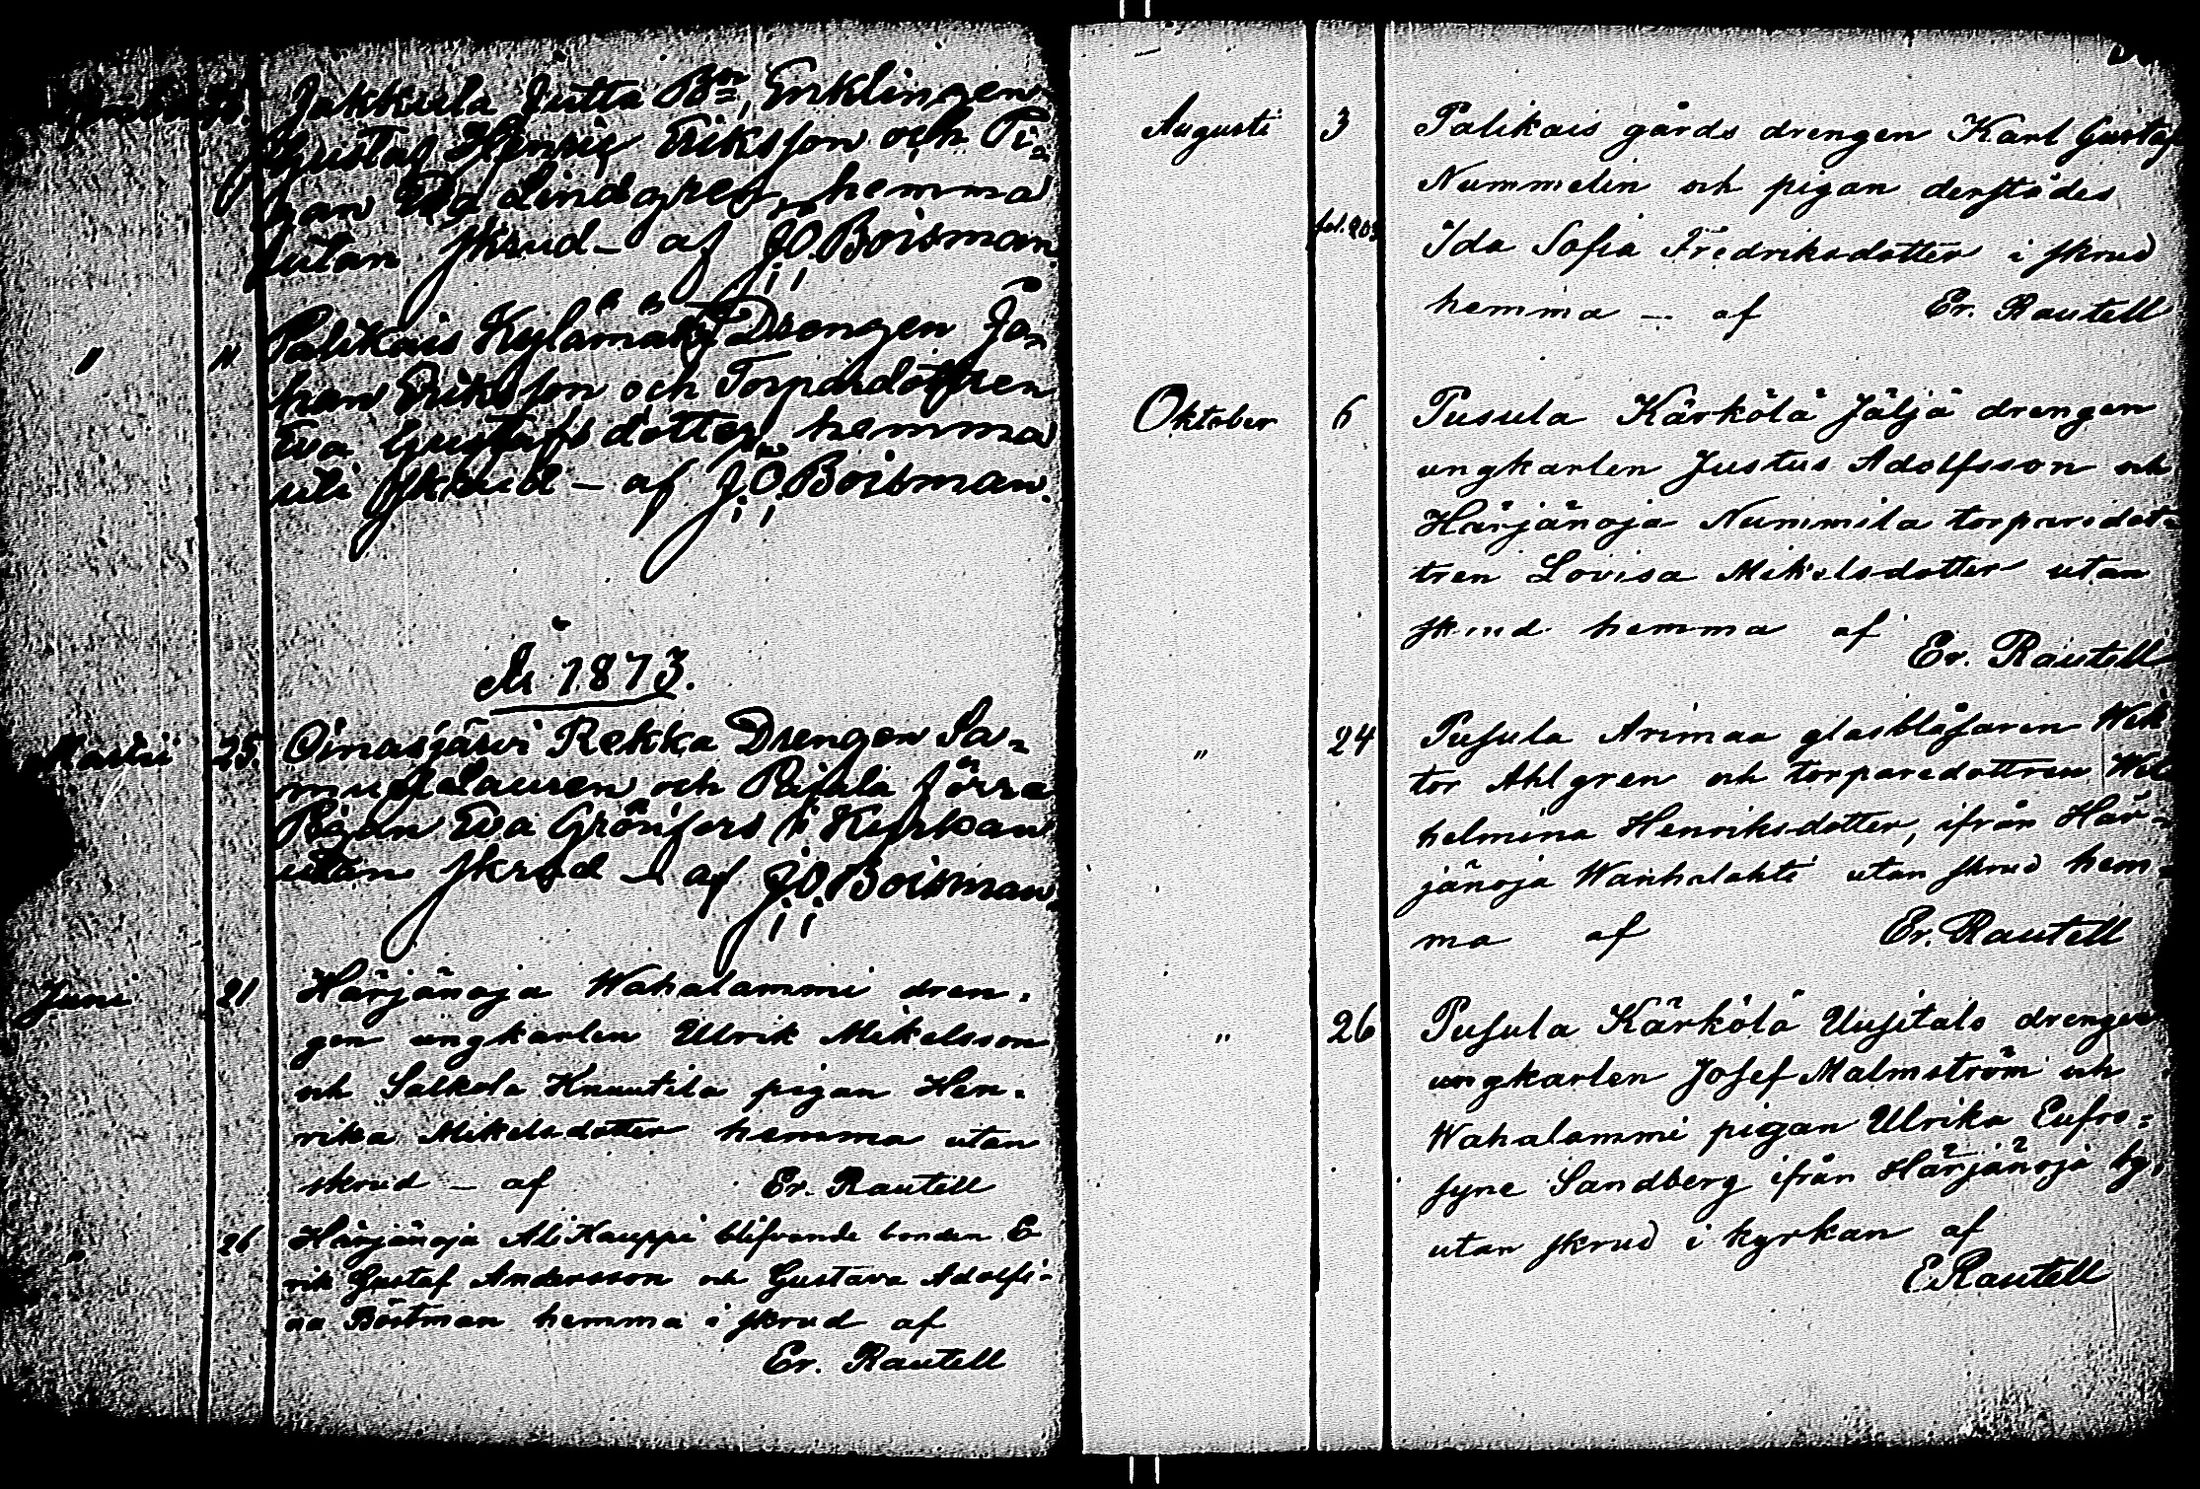 Jakkula Jutta Bon, Enklingen
Gustaf Henric Eriksson och Pi=
gan Eva Lindgren, hemma
utan skrud – af J.O. Boisman.
" " Palikais Kylämäki Drengen Jo=
han Eriksson och Torpardottren
Eva Gustafsdotter, hemma
uti skrud – af J.O. Boisman.
År 1873.
Martii 25. Oinasjärvi Rekka Drengen Sa=
muel Lauren och förra
Pigan Eva Grönfors i Kyrkan
utan skrud – af J.O. Boisman.
Juni 21 Härjänoja Wahalammi dren=
gen ungkarlen Ulrik Mikelsson
och Salkola Knuutila pigan Hen=
rika Mikelsdotter hemma utan
skrud – af Er. Rautell
" 26 Härjänoja Ali Kauppi blifvande bonden E
rik Gustaf Andersson och Gustava Adolfi=
na Böstman hemma i skrud af
Er. Rautell
Augusti 3 Palikais gårds drengen Karl Gustaf
Nummelin och pigan derstädes
fol. 203 Ida Sofia Fredriksdotter i skrud
hemma – af Er. Rautell
Oktober 6 Pusula Kärkölä Jäljä drengen
ungkarlen Justus Adolfsson och
Härjänoja Nummila torparedot=
tren Lovisa Mikelsdotter utan
skrud hemma af
Er. Rautell
" 24 Pusula Arimaa glasblåsaren Wik
tor Ahlgren och torparedottren Wil
helmina Henriksdotter, ifrån Här=
jänoja Wanhalahti utan skrud hem=
ma af Er. Rautell
" 26 Pusula Kärkölä Uusitalo drengen
ungkarlen Josef Malmström och
Wahalammi pigan Ulrika Eufro=
syne Sandberg ifrån Härjänoja by,
utan skrud i kyrkan af
E. Rautell